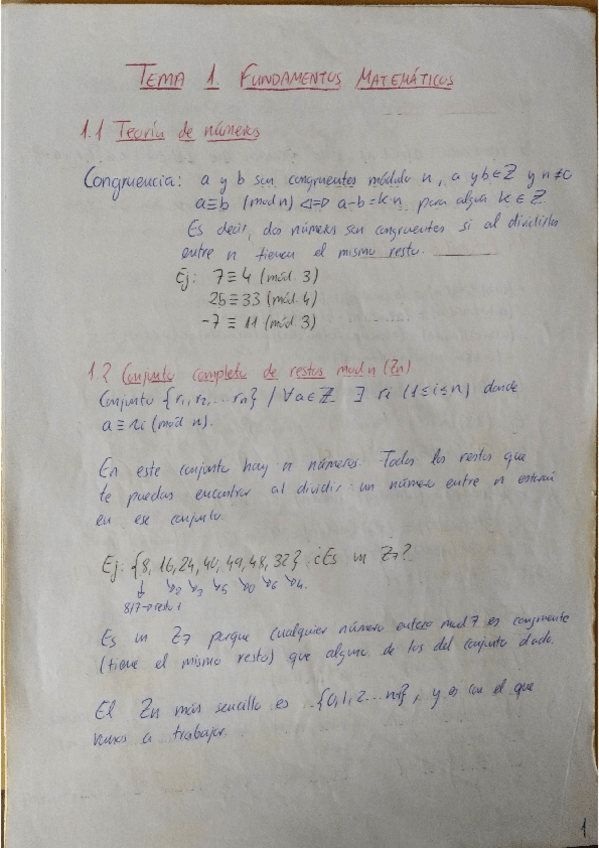 TEMA 1. FUNDAMENTOS MATEMÁTICOS
1.1 Teoría de números
Congruencia: a y b son congruentes módulo n, a y b ∈ Z y n ≠ 0
a ≡ b (mod n) <=> a-b = k·n para algún k ∈ Z.
Es decir, dos números son congruentes si al dividirlos
entre n tienen el mismo resto.
Ej: 7 ≡ 4 (mód. 3)
25 ≡ 33 (mód. 4)
-7 ≡ 11 (mód. 3)
1.2 Conjunto completo de restos mod n (Zn)
Conjunto {r1, r2, ... rn} / ∀a ∈ Z ∃ ri (1≤i≤n) donde
a ≡ ri (mód n).
En este conjunto hay n números. Todos los restos que
te puedas encontrar al dividir un número entre n estarán
en ese conjunto.
Ej: {8, 16, 24, 40, 49, 48, 32} ¿Es un Z7?
2 3 5 0 6 4
8/7 → resto 1
Es un Z7 porque cualquier número entero mod 7 es congruente
(tiene el mismo resto) que alguno de los del conjunto dado.
El Zn más sencillo es {0, 1, 2 ... n-1}, y es con el que
vamos a trabajar.
1